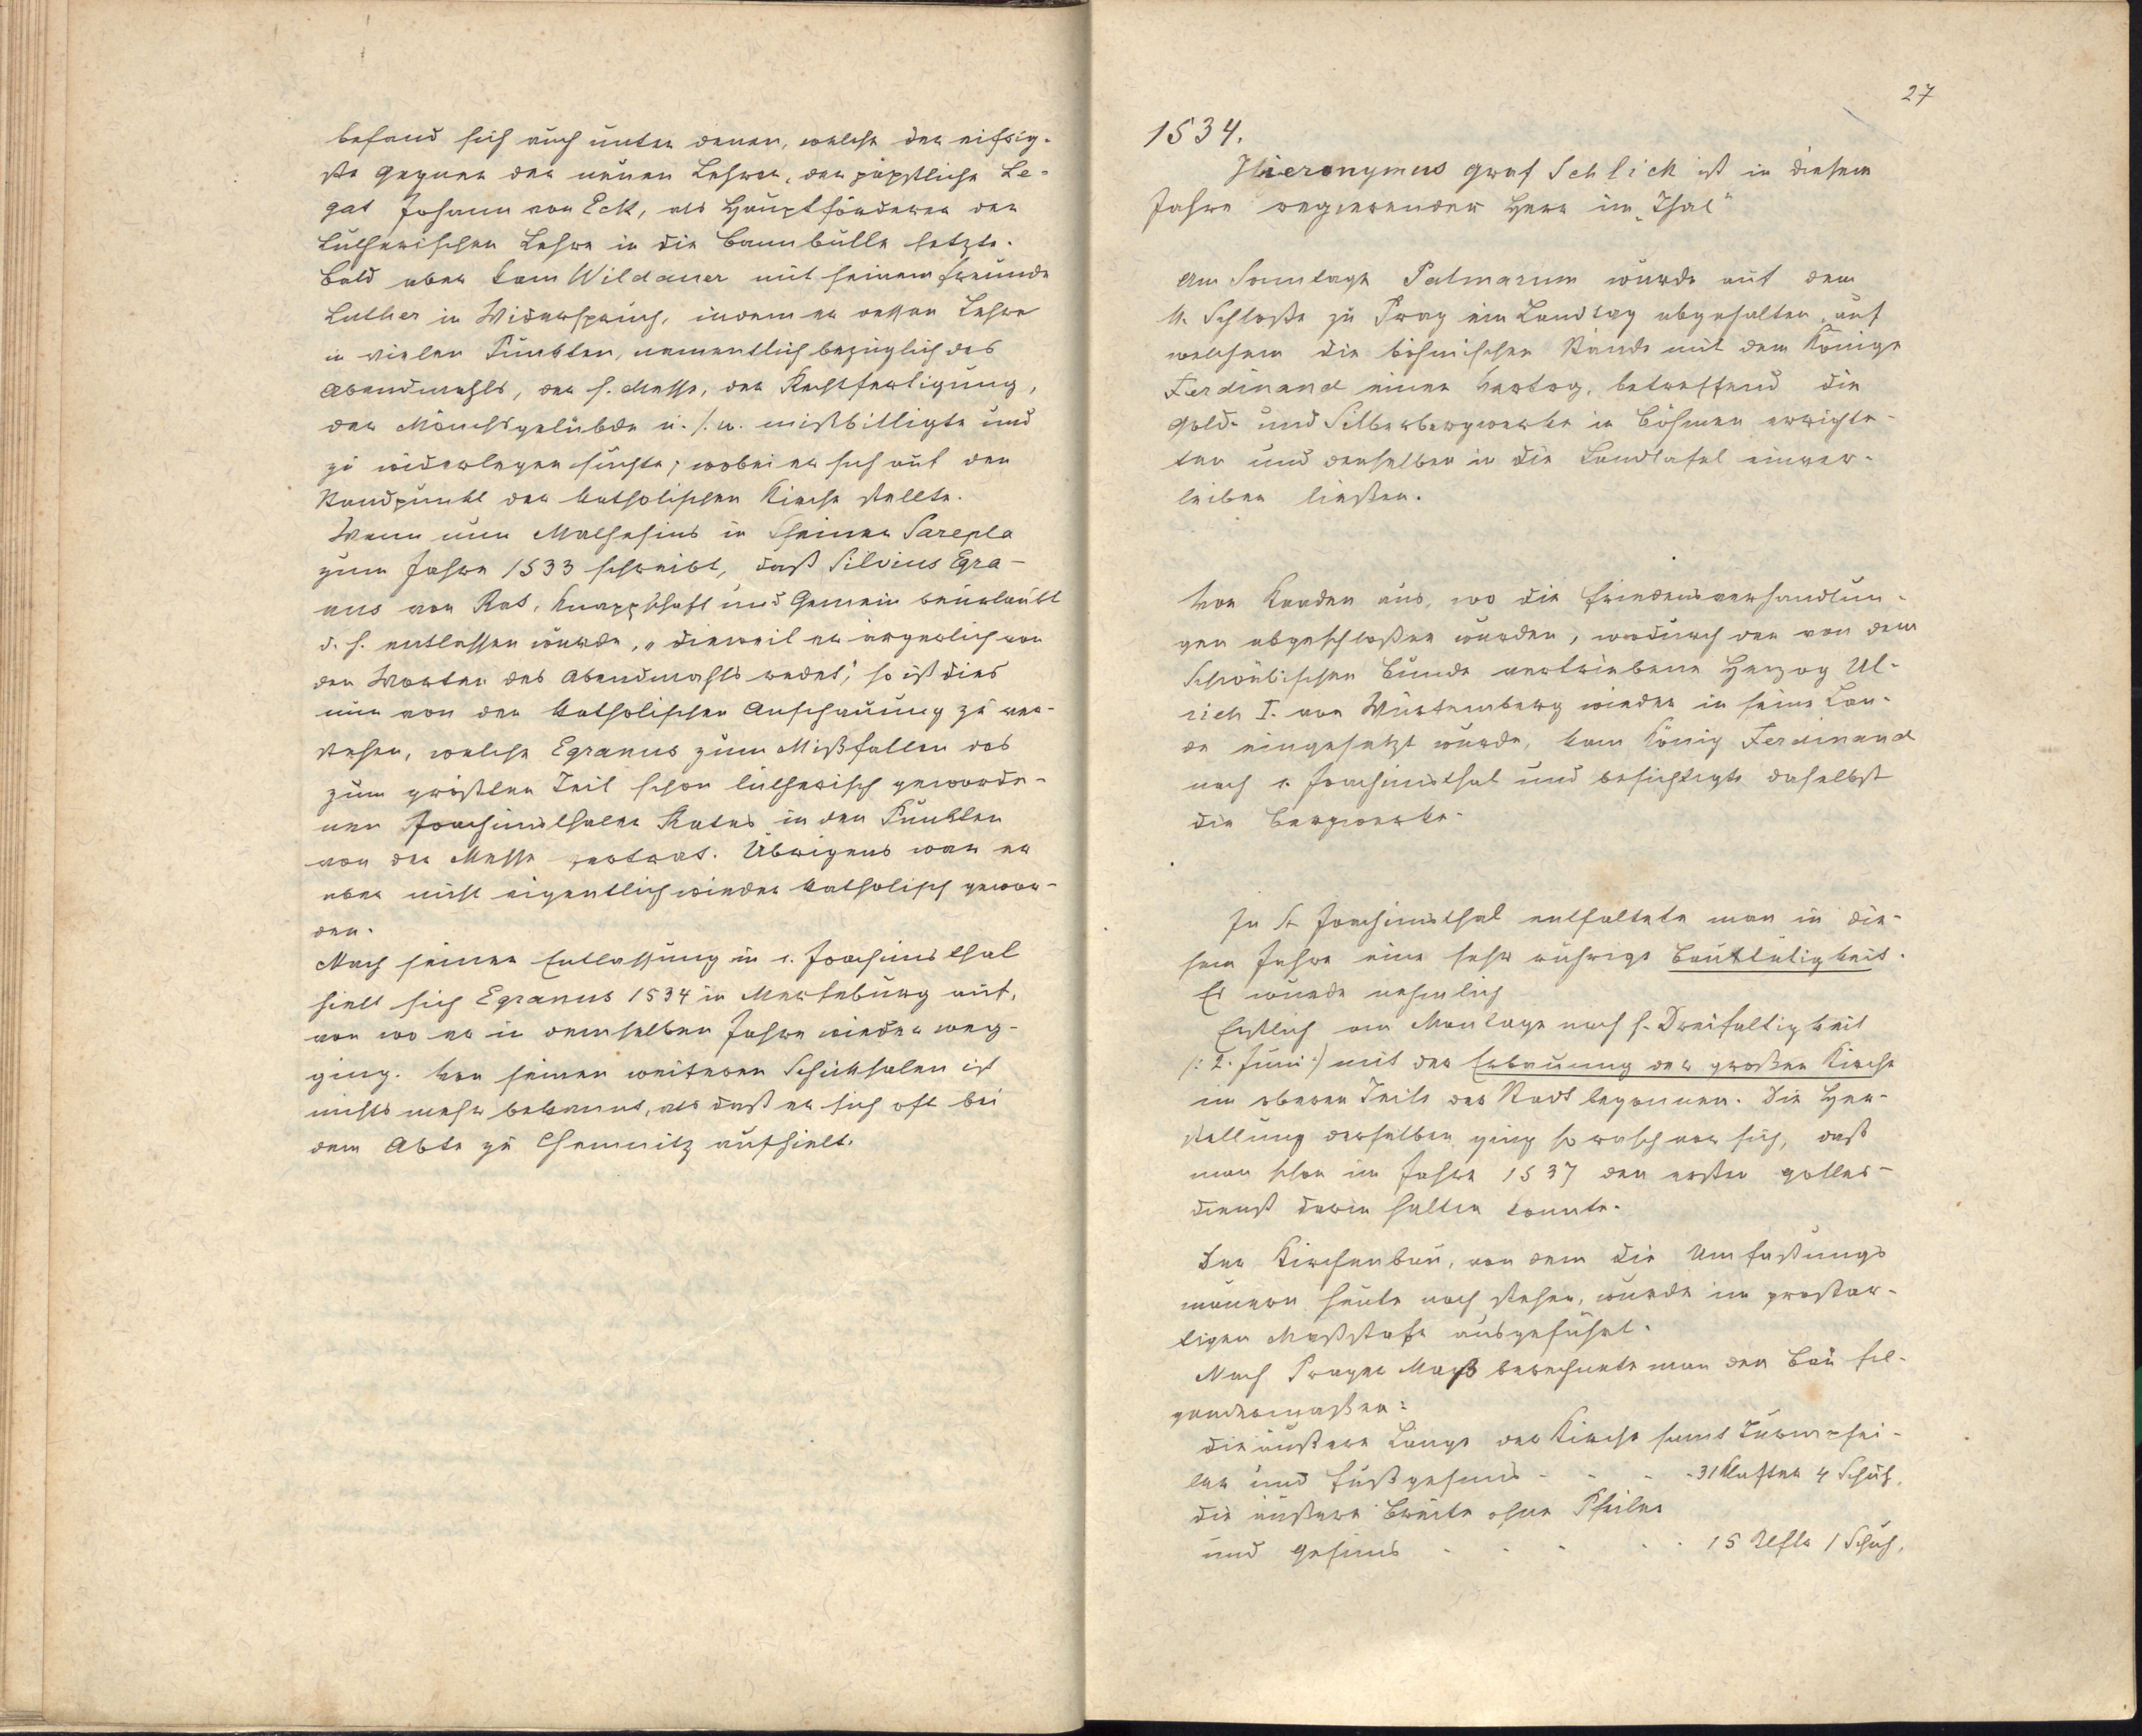 befand sich auch unter denen, welche der eifrig-
ste Gegner der neuen Lehre, der päpstliche Le-
gat Johann von Eck, als Hauptförderer der
Lutherischen Lehre in die Bannbulle setzte.
Bald aber kam Wildauer mit seinem Freunde
Luther in Widerspruch, indem er dessen Lehre
in vielen Punkten, namentlich bezüglich des
Abendmahls, der h. Messe, der Rechtfertigung,
der Mönchsgelübde u. s. w. mißbilligte und
zu widerlegen suchte; wobei er sich auf den
Standpunkt der katholischen Kirche stellte.
Wenn nun Mathesius in seiner Sarepta
zum Jahre 1533 schreibt, daß Silvius Egra-
nus von Rat, Knappschaft und Gemein beurlaubt
d. h. entlassen wurde, „dieweil er ärgerlich von
den Worten des Abendmahls redet," so ist dies
nur von der katholischen Anschauung zu ver-
stehen, welche Egranus zum Mißfallen des
zum größten Teil schon lutherisch geworde-
nen Joachimsthaler Rates in den Punkten
von der Messe vertrat. Übrigens war er
aber nicht eigentlich wieder katholisch gewor-
den.
Nach seiner Entlassung in s. Joachimsthal
hielt sich Egranus 1534 in Merseburg auf,
von wo er in demselben Jahre wieder weg-
ging. Von seinen weiteren Schicksalen ist
nichts mehr bekannt, als daß er sich oft bei
dem Abte zu Chemnitz aufhielt.
27
1534.
Hieronymus Graf Schlick ist in diesem
Jahre regierender Herr im „Thal"
Am Sonntage Palmarum wurde auf dem
k. Schloße zu Prag ein Landtag abgehalten, auf
welchem die böhmischen Stände mit dem Könige
Ferdinand einen Vertrag, betreffend die
Gold- und Silberbergwerke in Böhmen errichte-
ten und denselben in die Landtafel einver-
leiben ließen.
Von Kaaden aus, wo die Friedensverhandlun-
gen abgeschloßen wurden, wodurch der von dem
Schwäbischen Bunde vertriebene Herzog Ul-
rich I. von Würtemberg wieder in seine Lan-
de eingesetzt wurde, kam König Ferdinand
nach s. Joachimsthal und besichtigte daselbst
die Bergwerke.
In St Joachimsthal entfaltete man in die-
sem Jahre eine sehr rührige Bautätigkeit.
Es wurde nehmlich
Erstlich am Montage nach h. Dreifaltigkeit
/: 2. Juni :/ mit der Erbauung der großen Kirche
im oberen Teile der Stadt begonnen. Die Her-
stellung derselben ging so rasch vor sich, daß
man schon im Jahre 1537 den ersten Gottes-
dienst darin halten konnte.
Der Kirchenbau, von dem die Umfaßungs
mauern heute noch stehen, wurde im großar-
tigen Maßstabe ausgeführt.
Nach Prager Maß berechnete man den Bau fol-
gendermaßen:
die äußere Länge der Kirche samt Turmpfei-
ler und Fußgesims - - - - 31 Klafter 4 Schuh.
die äußere Breite ohne Pfeiler
und Gesims - - - - - 15 Klftr 1 Schuh.